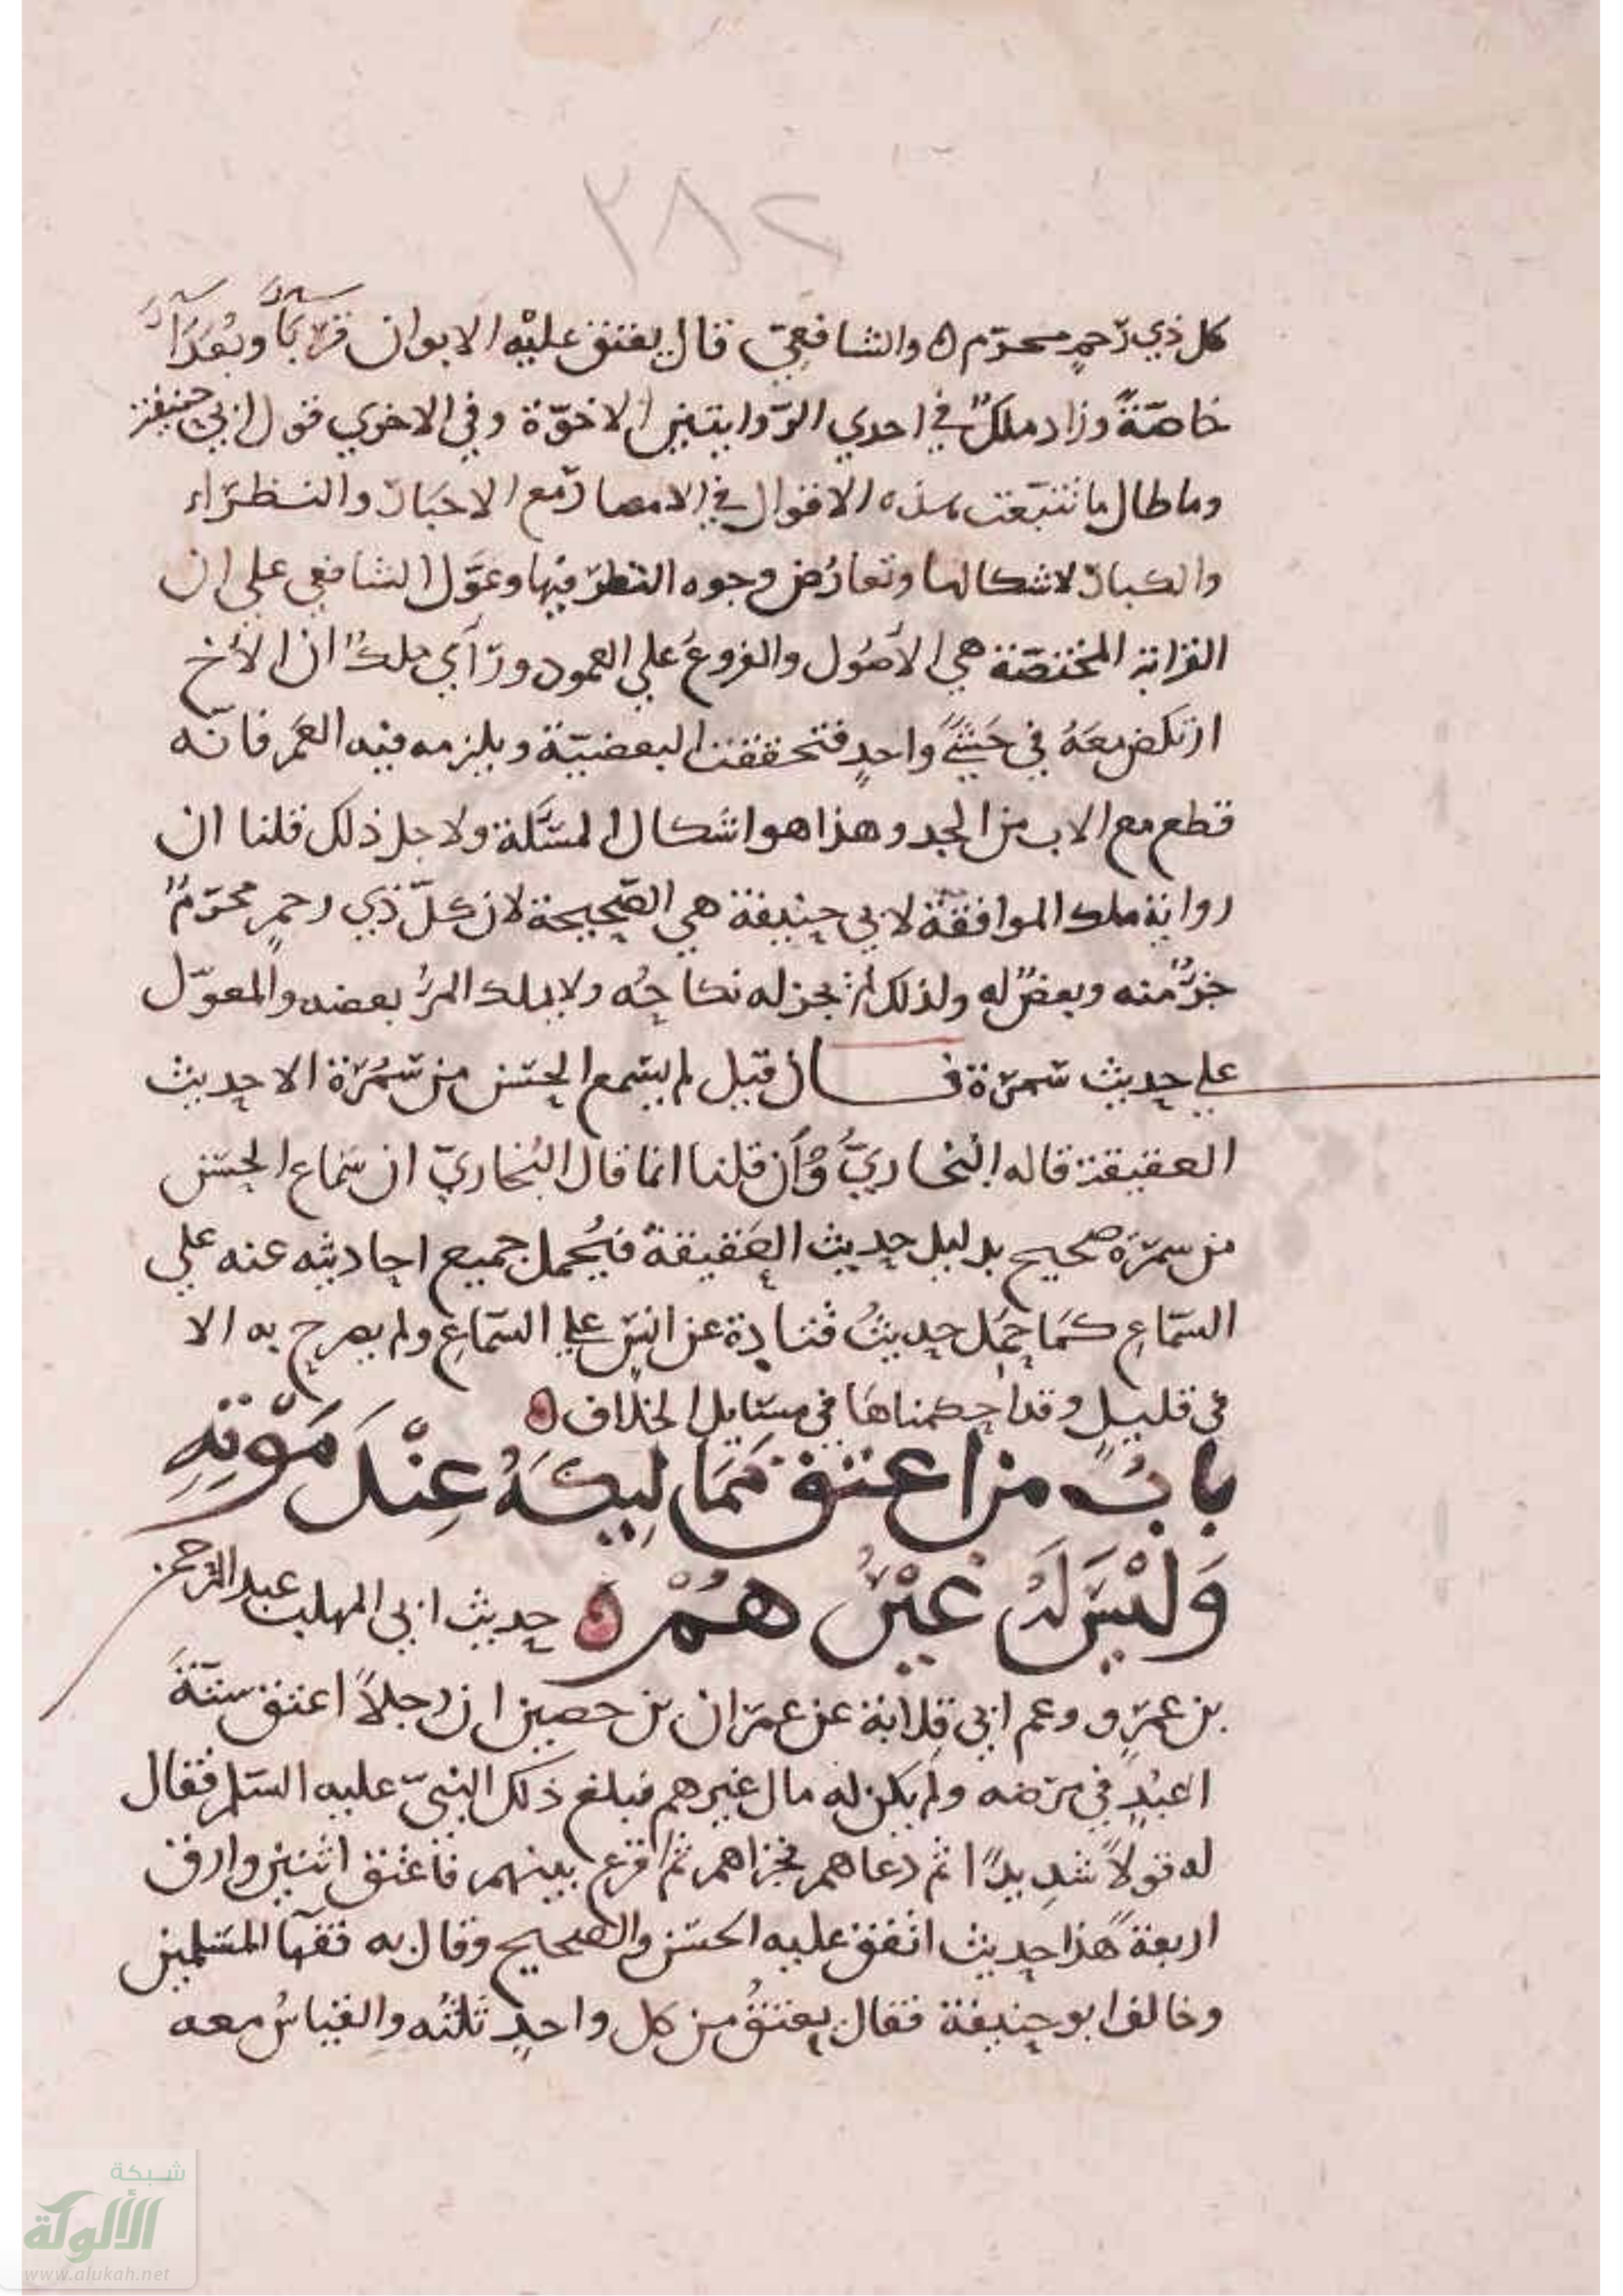 ٢٨٢
كل ذي رَحمٍ محرّم ٥ والشافعيّ قال يعتق عليْه الابوان قربا وبعدا
خاصّةً وزاد ملكٌ في احدي الرّوايتين الاخوّة وفي الاخري قول ابي حنيفة
وما طال ما تتبّعت هذه الاقوال في الامصار مع الاحبار والنظراء
والكبار لاشكالها وتعارُض وجوه النظر فيها وعوّل الشافعي علي ان
القرابة المختصّة هي الأصُول والفروعَ علي العمود ورَآي ملكٌ ان الأخ
ارتكض معَهُ في حَشًي واحدٍ فتحققت البعضيّة ويلزمه فيه العَم فانّه
قطع مع الاب من الجد وهذا هو اشكال المسَٔلة ولاجل ذلك قلنا ان
رواية ملك الموافقَة لابي حنيفة هي الصّحيحة لان كلّ ذي رحمٍ محرّمٌ
جزءٌ منه وبعضٌ له ولذلك لم يجز له نكاحُه ولا يملك المرءُ بعضه والمعوّل
علي حديث سَمرَة قال قيل لم يسمع الحسَن من سَمُرَة الا حديث
العقيقة قاله البُخاريُّ وَأن قلنا انما قال البُخاريّ ان سَماع الحسَن
من سمرَة صحيح بدليل حديث العَقيقة فيُحمل جميع احاديثه عنه علي
السّماعِ كمَا حمِل حديثُ قتادة عن انسٍ علي السّماعِ ولم يصرح به الا
في قليلٍ وقد احكمناها في مسَايل الخلاف ٥
بابُ من اعتق مَمَاليكَهُ عِنْدَ مَوْتِهِ
وَليْسَ لَهُ غيْرُهُمْ ٥ حديث ابي المهلب عبد الرّحمن
بن عمَرٍو وعم ابي قِلابة عن عمَران بن حصين ان رجلاً اعتق ستّةَ
اعبُدٍ في مرَضه ولم يكن له مال غيرهم فبلغ ذلك النبيّ عليه السّلم فقال
له قولاً شديدًا ثم دعاهم فجزاهم ثم اقرع بينهم فأعتق اثنين وارق
اربعةً هذا حديث اتفق عليه الحسَن والصّحيح وقال به فقهآ المسَلمين
وخالف ابو حنيفة فقال يعتقُ من كل واحدٍ ثلثُه والقياسُ معه
شبكة
الألوكة
www.alukah.net